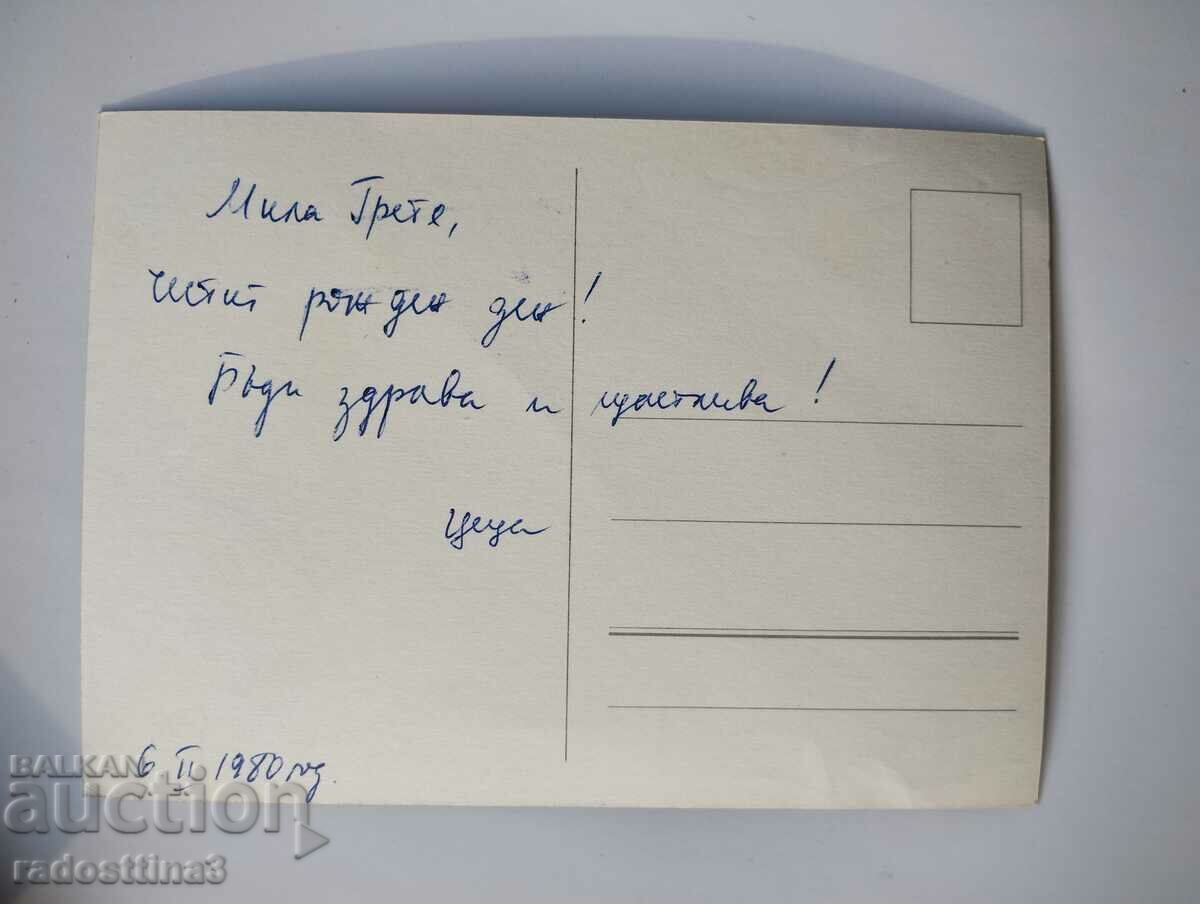 Мила Грете,
Честит рожден ден!
Бъди здрава и щастлива!
Цеца
6. II 1980 год.
BALKAN
auction
radosttina3